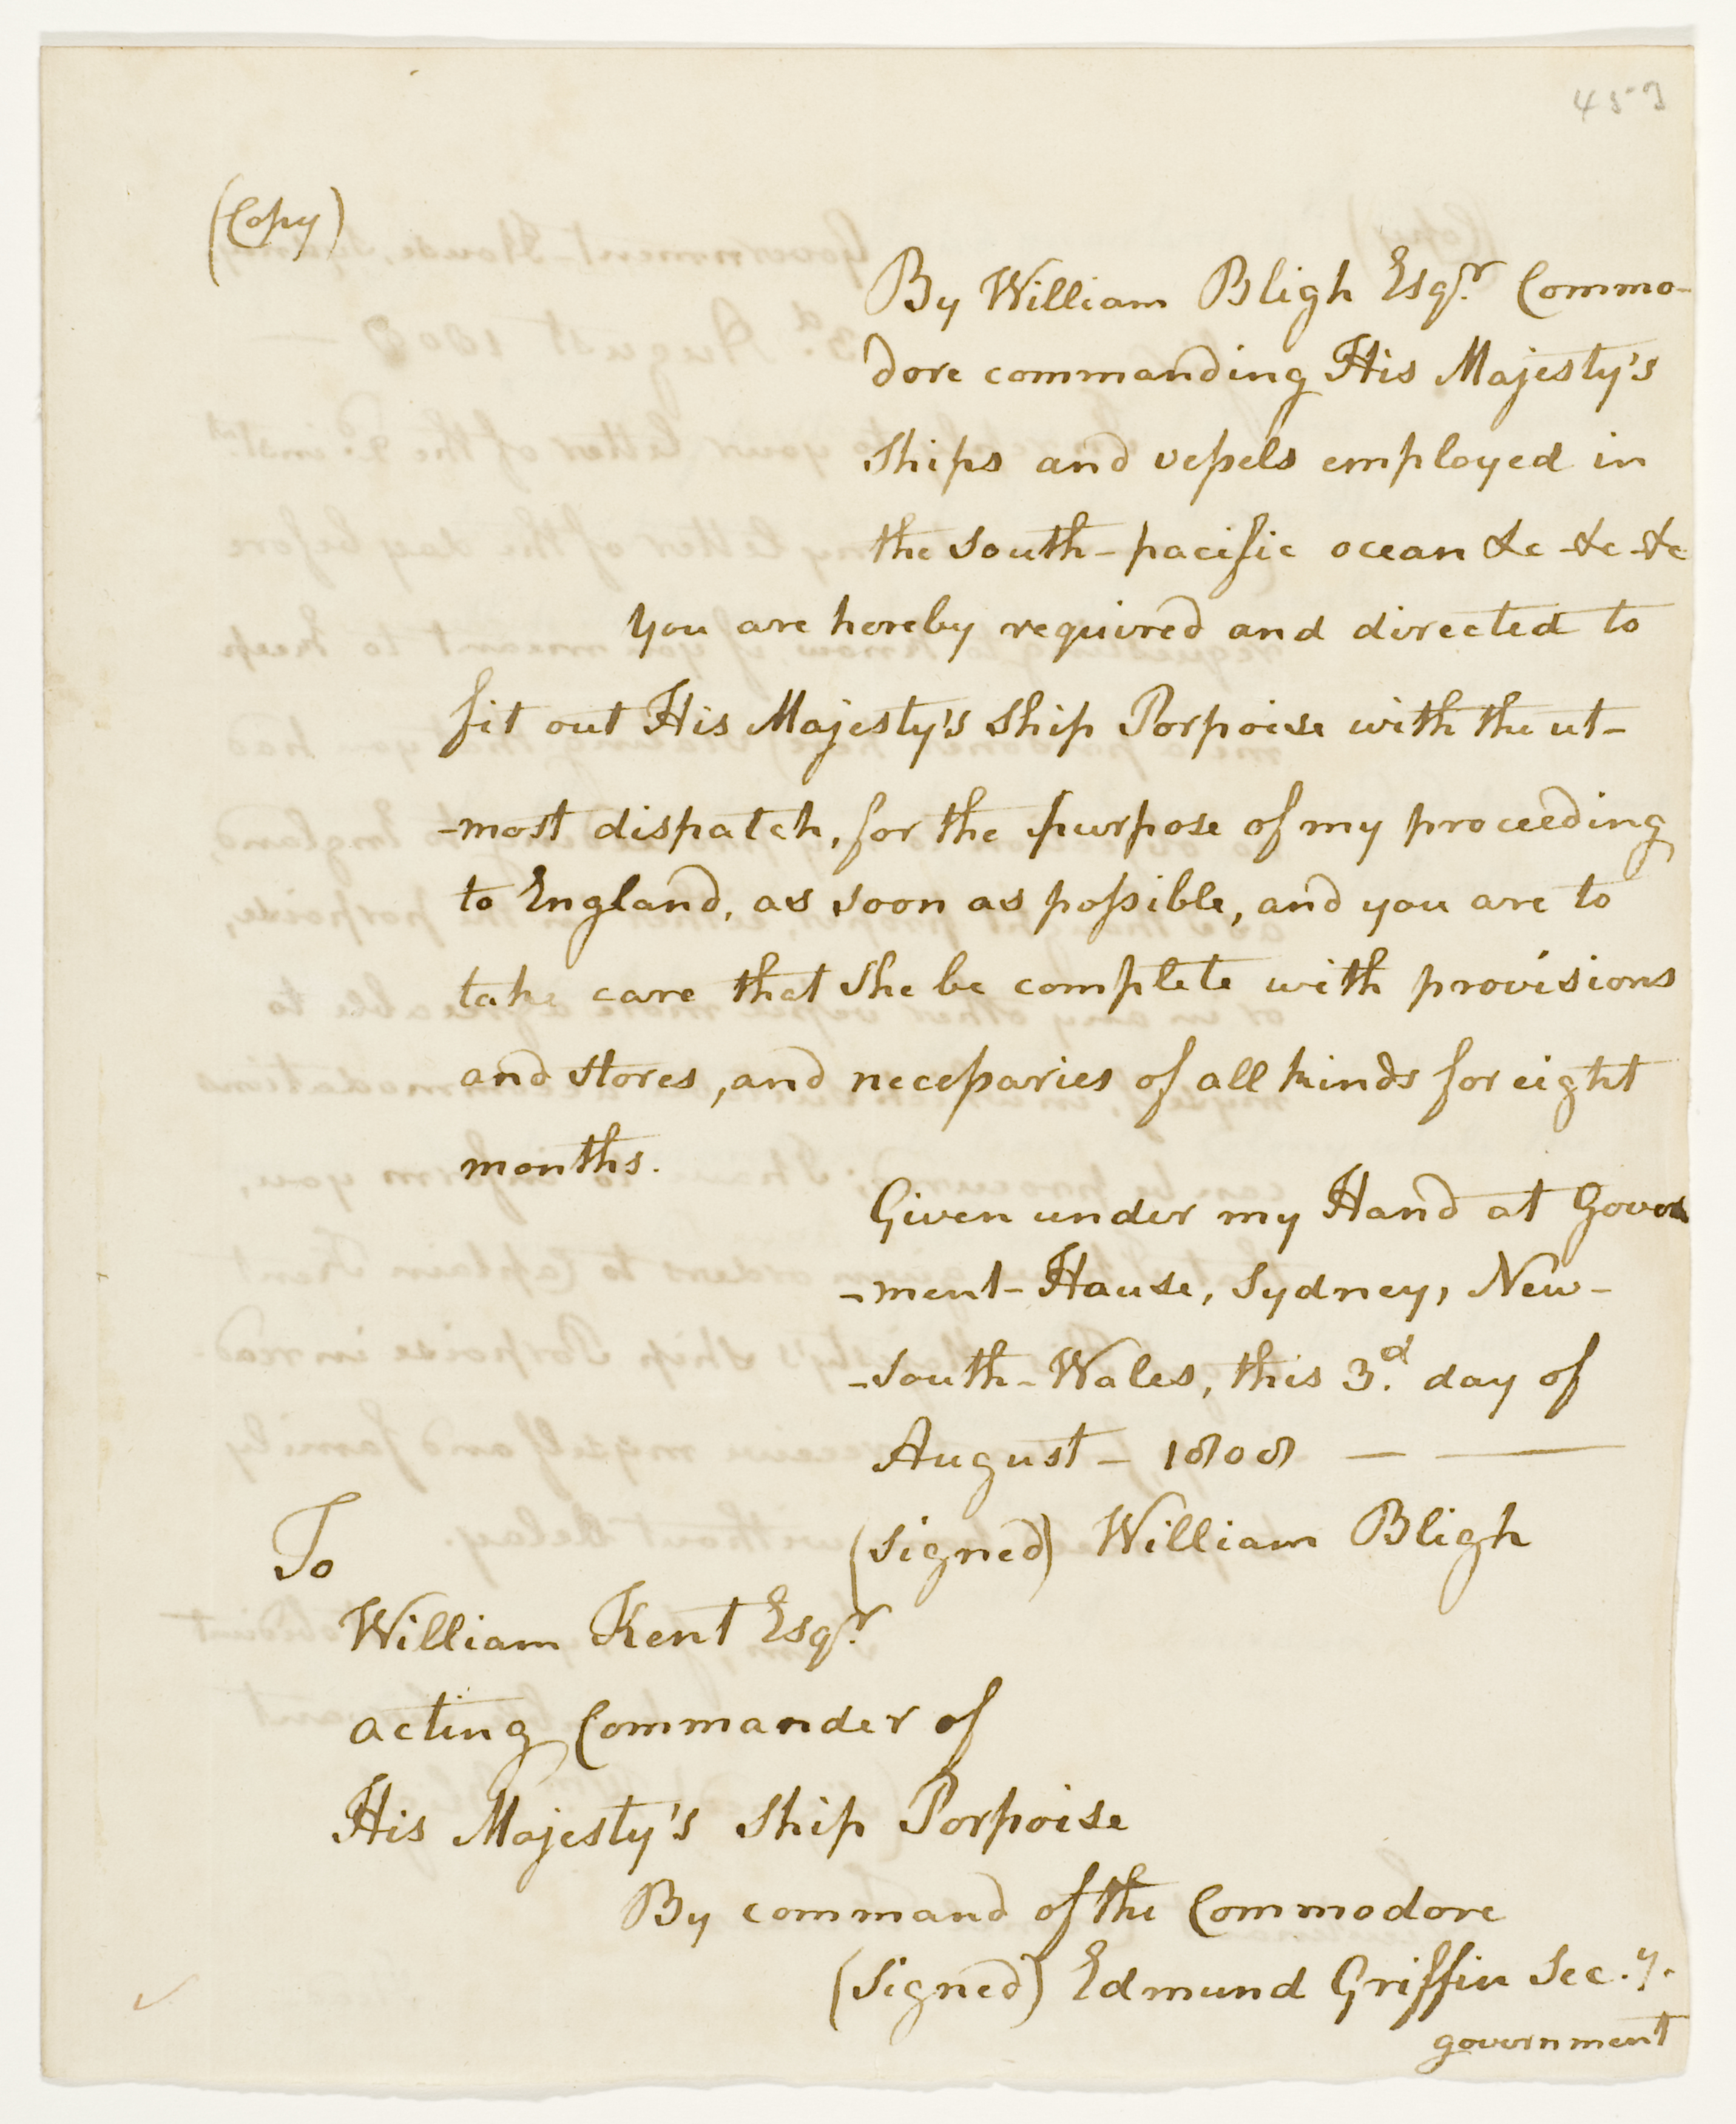 453
(Copy)
By William Bligh Esqr. Commo-
dore commanding His Majesty's
ships and vessels employed in
the south-pacific ocean &c &c &c
You are hereby required and directed to
fit out His Majesty's ship Porpoise with the ut-
-most dispatch, for the purpose of my proceeding
to England, as soon as possible, and you are to
take care that she be complete with provisions
and stores, and necessaries of all kinds for eight
months.
Given under my Hand at Govern
-ment-House, Sydney, New-
-south-Wales, this 3d. day of
August - 1808 — —
(signed) William Bligh
To
William Kent Esqr.
acting Commander of
His Majesty's ship Porpoise
By command of the Commodore
(signed) Edmund Griffin Sec.y.
government